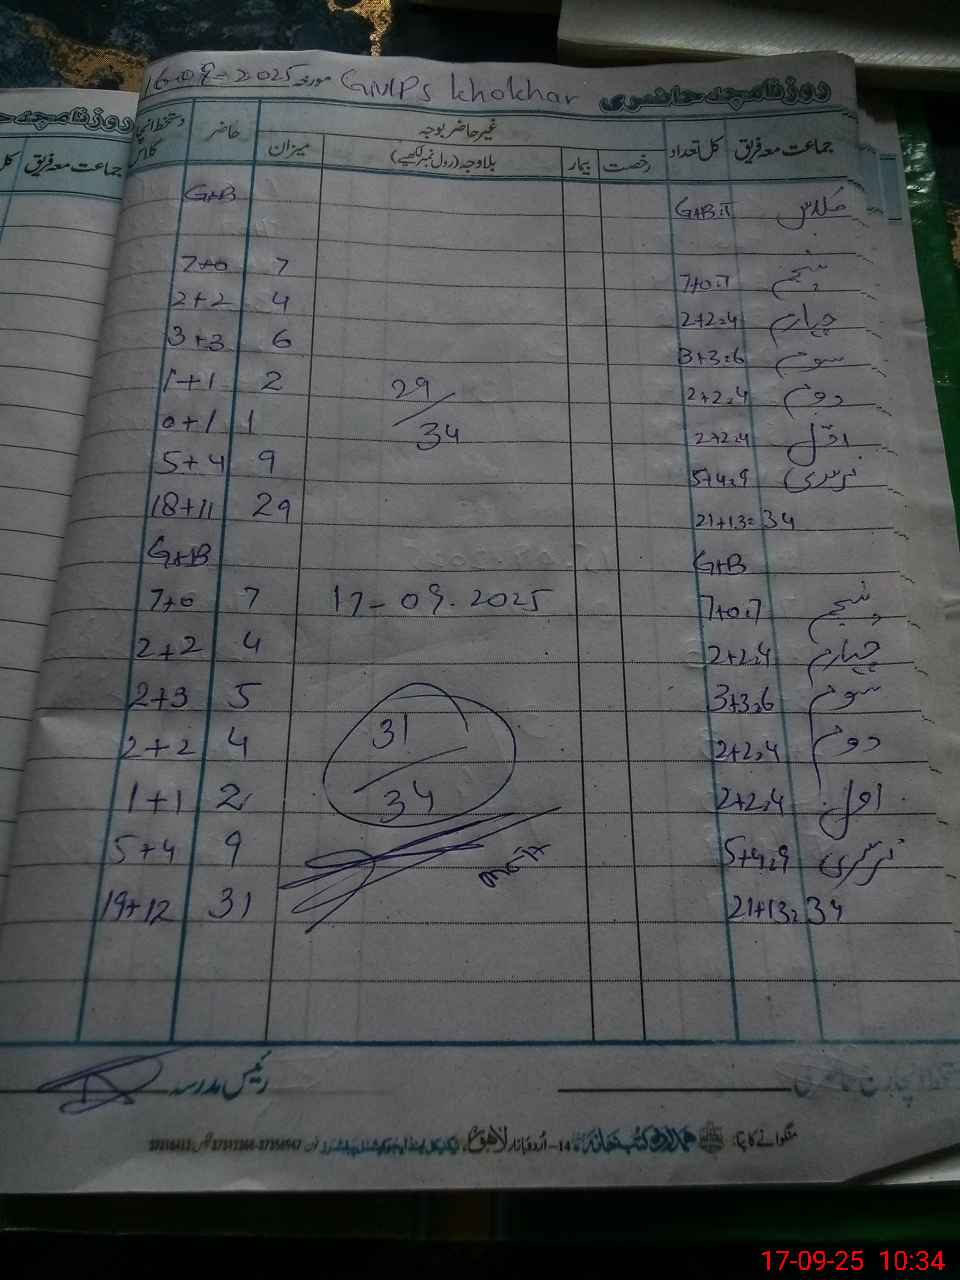 روزنامچہ حاضری GMPS khokhar مورخہ 16-09-2025
جماعت معہ فریق کل تعداد غیر حاضر بوجہ حاضر دستخط انچارج کلاس
رخصت بیمار بلاوجہ (رول نمبر لکھیے) میزان
کلاس G+B=T G+B
پنجم 7+0=7 7 7+0
چہارم 2+2=4 4 2+2
سوم 3+3=6 6 3+3
دوم 2+2=4 29/34 2 1+1
اول 2+2=4 1 0+1
نرسری 5+4=9 9 5+4
21+13=34 29 18+11
G+B G+B
پنجم 7+0=7 17-09-2025 7 7+0
چہارم 2+2=4 4 2+2
سوم 3+3=6 5 2+3
دوم 2+2=4 31/34 4 2+2
اول 2+2=4 2 1+1
نرسری 5+4=9 9 5+4
21+13=34 31 19+12
رئیس مدرسہ
منگوانے کا پتہ: ہمدرد کتب خانہ 14-اردو بازار لاہور
روزنامچہ حا
جماعت معہ فریق کل
17-09-25 10:34